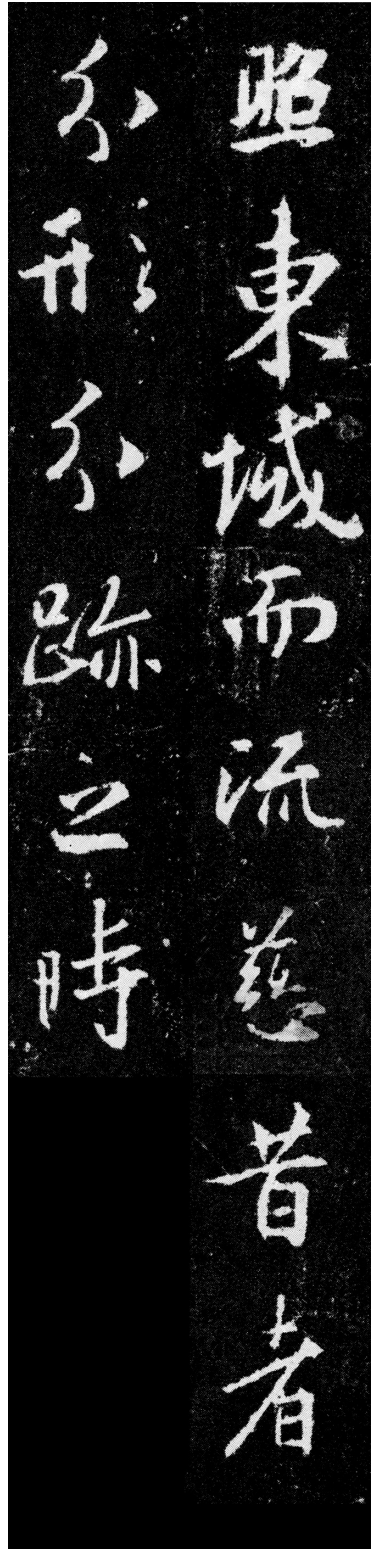 照東域而流慈昔者
分形分跡之時